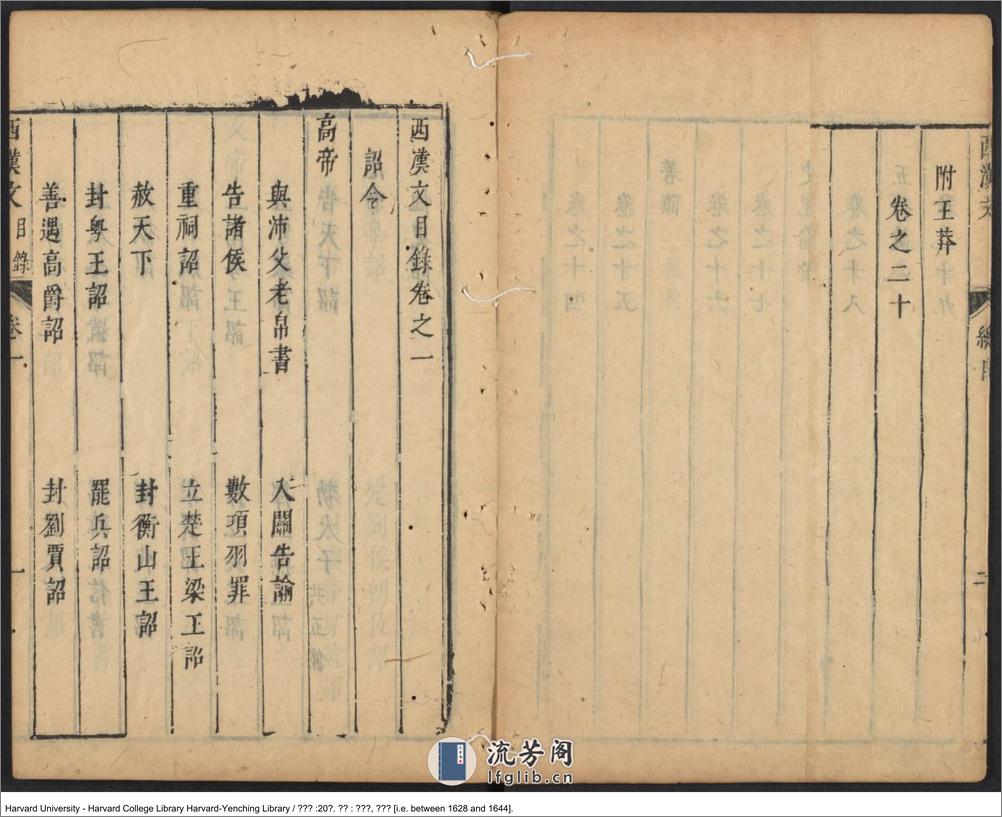 西漢文
總目
二
附王莽
卷之二十
西漢文目錄卷之一
詔令
高帝
與沛父老帛書
入關告諭
告諸侯
數項羽罪
重祠詔
立楚王梁王詔
赦天下
封衡山王詔
封粵王詔
罷兵詔
善遇高爵詔
封劉賈詔
西漢文
目錄
卷一
一
流芳阁
lfglib.cn
Harvard University - Harvard College Library Harvard-Yenching Library / ??? :20?. ?? : ???, ??? [i.e. between 1628 and 1644].